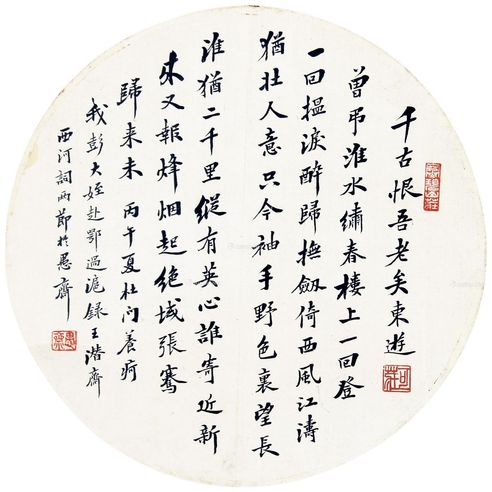 千古恨吾老矣東遊
曾弔淮水繡春樓上一回登
一回搵淚醉歸撫劔倚西風江濤
猶壯人意只今袖手野色裏望長
淮猶二千里縱有英心誰寄近新
来又報烽烟起絶域張騫
歸来未 丙午夏杜門養疴
我彭大姪赴鄂過滬錄王潛齋
西河詞兩節於愚齋